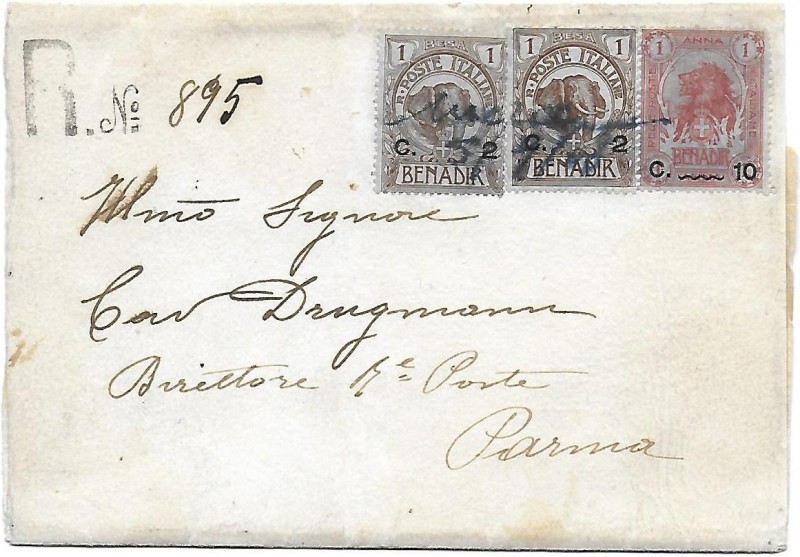 R. No 895
1 BESA 1
R. POSTE ITALIANE
C. 2
BENADIR
1 BESA 1
R. POSTE ITALIANE
C. 2
BENADIR
1 ANNA 1
C. 10
BENADIR
Illmo Signore
Cav Drugmann
Direttore Re Poste
Parma